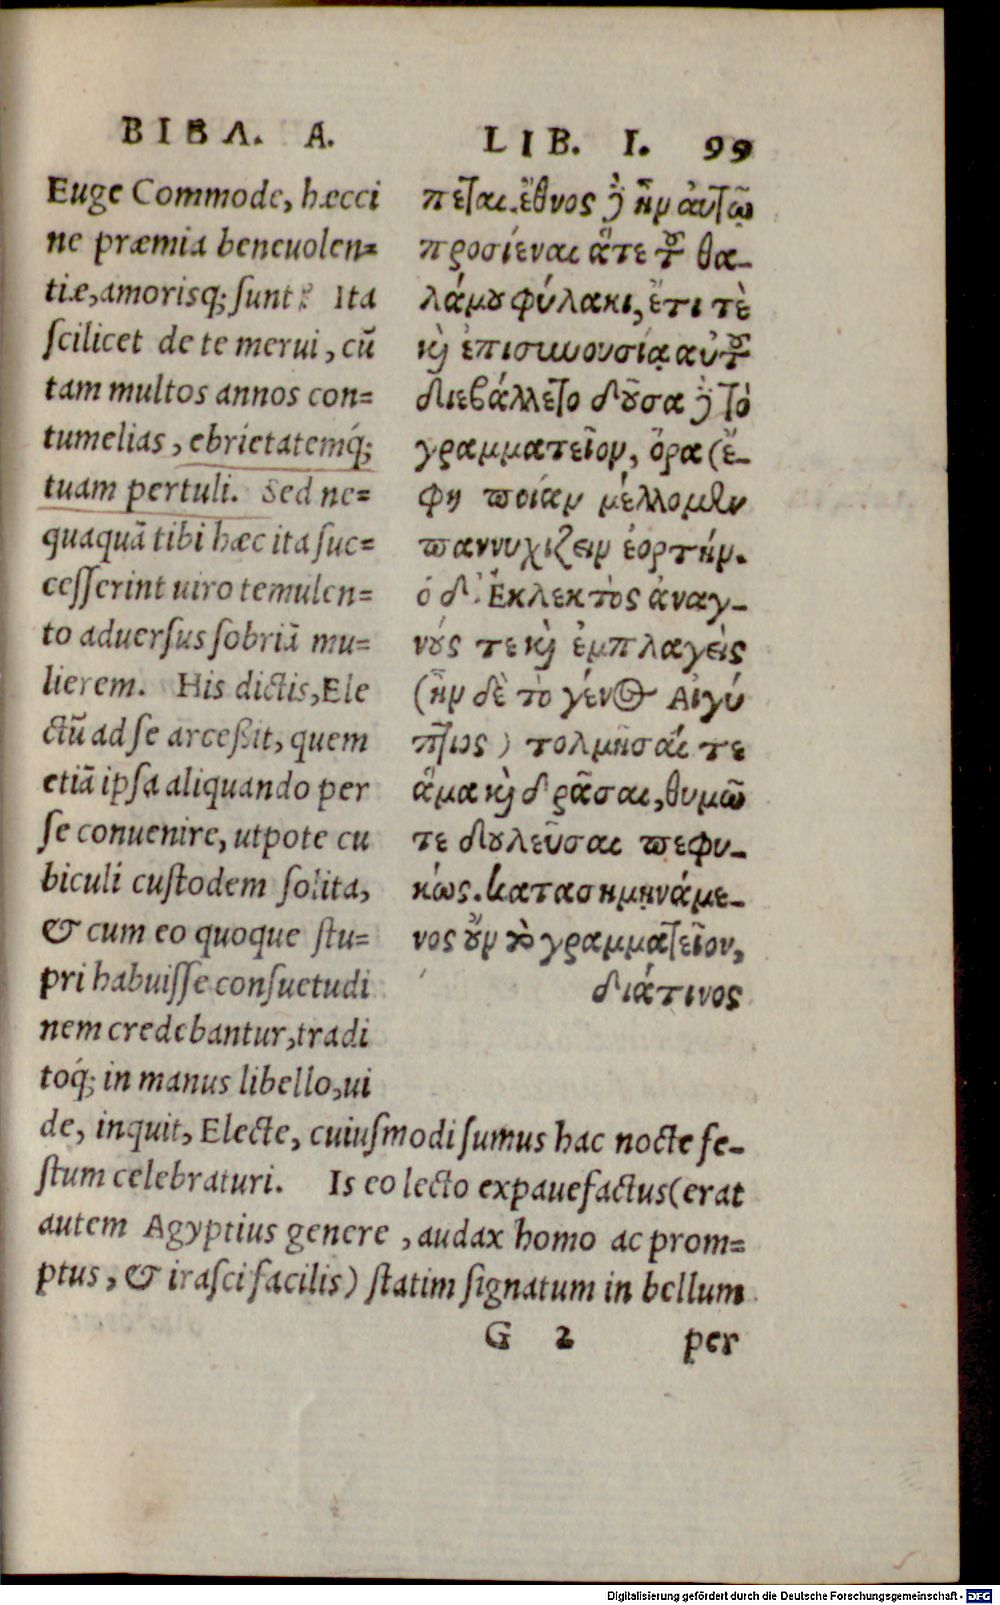 ΒΙΒΛ. Α. LIB. I. 99
Euge Commode, hæcci
ne præmia beneuolen=
tiæ, amorisq; sunt? Ita
scilicet de te merui, cū
tam multos annos con=
tumelias, ebrietatemq́;
tuam pertuli. Sed ne=
quaquā tibi hæc ita suc=
cesserint uiro temulen=
to aduersus sobriā mu=
lierem. His dictis, Ele
ctū ad se arcessit, quem
etiā ipsa aliquando per
se conuenire, utpote cu
biculi custodem solita,
& cum eo quoque stu=
pri habuisse consuetudi
nem credebantur, tradi
toq́; in manus libello, ui
de, inquit, Electe, cuiusmodi sumus hac nocte fe-
stum celebraturi. Is eo lecto expauefactus (erat
autem Agyptius genere, audax homo ac prom=
ptus, & irasci facilis) statim signatum in bellum
πεται. ἔθνος ἦν αὐτῷ
προσίεναι ἅτε τοῦ θα-
λάμου φύλακι, ἔτι τὲ
καὶ ἐπὶ συνουσίᾳ αὐτοῦ
διεβάλλετο δοῦσα τὸ
γραμματεῖον, ὅρα (ἔ-
φη ποίαν μέλλομεν
παννυχίζειν ἑορτήν.
ὁ δ' Ἐκλεκτὸς ἀναγ-
νούς τε καὶ ἐμπλαγεὶς
(ἦν δὲ τὸ γένος Αἰγύ
πτιος) τολμῆσαί τε
ἅμα καὶ δρᾶσαι, θυμῷ
τε δουλεῦσαι πεφυ-
κώς. κατασημηνάμε-
νος οὖν τὸ γραμματεῖον,
διά τινος
G 2 per
Digitalisierung gefördert durch die Deutsche Forschungsgemeinschaft - DFG